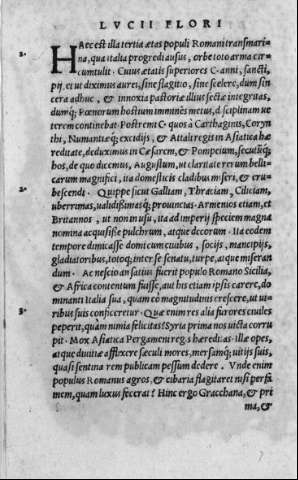 LVCII FLORI
1. HAec est illa tertia ætas populi Romani transmari-
na, qua italia progredi ausus, orbe toto arma cir
cumtulit. Cuius ætatis superiores C. anni, sancti,
pij, et ut diximus aurei, sine flagitio, sine scelere, dum sin
cera adhuc, & innoxia pastoriæ illius sectæ integritas,
dumq; Pœnorum hostium imminēs metus, disciplinam ue
terem continebat. Postremi C. quos à Carthaginis, Coryn
thi, Numantiæq; excidijs, & Attali regis in Asiatica hæ
reditate, deduximus in Cæsarem, & Pompeium, secutūq;
hos, de quo dicemus, Augustum, ut claritate rerum belli-
carum magnifici, ita domesticis cladibus miseri, & eru-
2. bescendi. Quippe sicut Galliam, Thraciam, Ciliciam,
uberrimas, ualidissimasq; prouincias. Armenios etiam, et
Britannos, ut non in usu, ita ad imperij speciem magna
nomina acquisisse pulchrum, atque decorum. Ita eodem
tempore dimicasse domi cum ciuibus, socijs, mancipijs,
gladiatoribus, totoq; inter se senatu, turpe, atque miseran
dum. Ac nescio an satius fuerit populo Romano Sicilia,
& Africa contentum fuisse, aut his etiam ipsis carere, do
minanti Italia sua, quam eo magnitudinis crescere, ut ui-
3. ribus suis conficeretur. Quæ enim res alia furores ciuiles
peperit, quam nimia felicitas? Syria prima nos uicta corru
pit. Mox Asiatica Pergameni regis hæreditas. illæ opes,
atque diuitiæ afflixere sæculi mores, mersamq; uitijs suis,
quasi sentina rem publicam pessum dedere. Vnde enim
populus Romanus agros, & cibaria flagitaret nisi per fa
mem, quam luxus fecerat? Hinc ergo Gracchana, & pri
ma, &